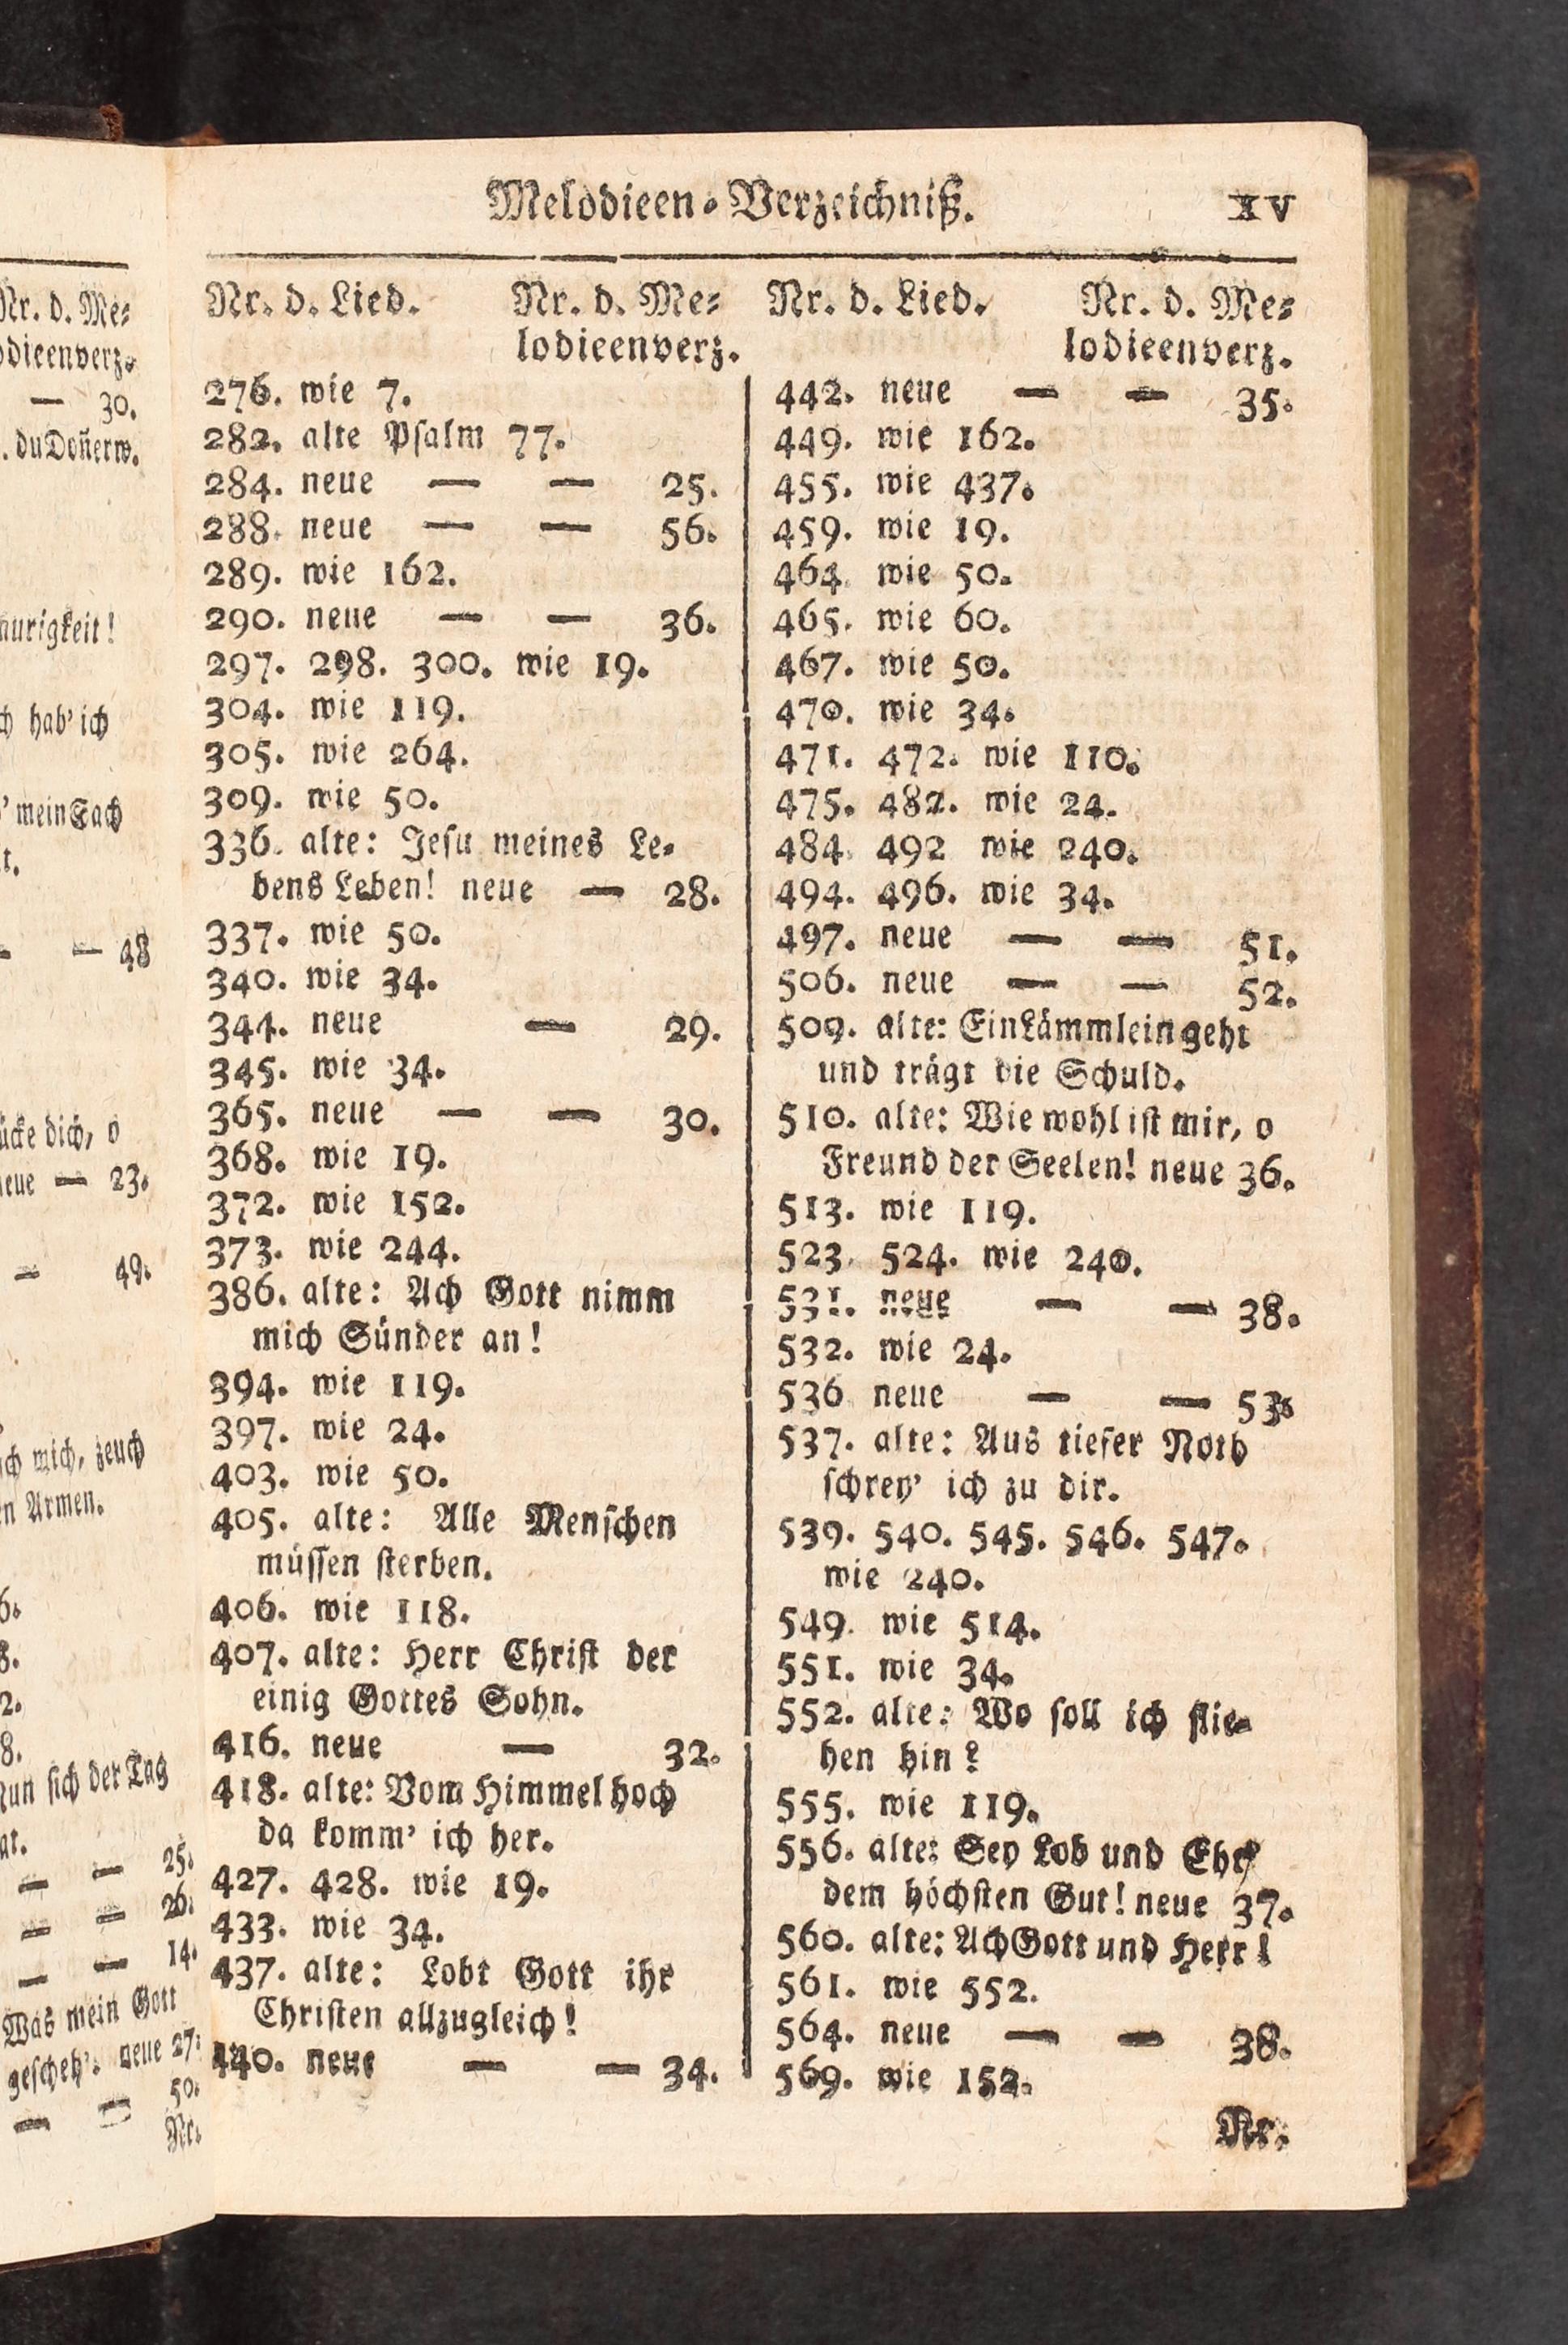 Melodieen-Verzeichniß. XV
Nr. d. Lied. Nr. d. Me-
lodieenverz.
276. wie 7.
282. alte Psalm 77.
284. neue — — 25.
288. neue — — 56.
289. wie 162.
290. neue — — 36.
297. 298. 300. wie 19.
304. wie 119.
305. wie 264.
309. wie 50.
336. alte: Jesu meines Le-
bens Leben! neue — 28.
337. wie 50.
340. wie 34.
344. neue — 29.
345. wie 34.
365. neue — — 30.
368. wie 19.
372. wie 152.
373. wie 244.
386. alte: Ach Gott nimm
mich Sünder an!
394. wie 119.
397. wie 24.
403. wie 50.
405. alte: Alle Menschen
müssen sterben.
406. wie 118.
407. alte: Herr Christ der
einig Gottes Sohn.
416. neue — 32.
418. alte: Vom Himmel hoch
da komm' ich her.
427. 428. wie 19.
433. wie 34.
437. alte: Lobt Gott ihr
Christen allzugleich!
440. neue — — 34.
Nr. d. Lied. Nr. d. Me-
lodieenverz.
442. neue — — 35.
449. wie 162.
455. wie 437.
459. wie 19.
464. wie 50.
465. wie 60.
467. wie 50.
470. wie 34.
471. 472. wie 110.
475. 482. wie 24.
484. 492 wie 240.
494. 496. wie 34.
497. neue — — 51.
506. neue — — 52.
509. alte: Ein Lämmlein geht
und trägt die Schuld.
510. alte: Wie wohl ist mir, o
Freund der Seelen! neue 36.
513. wie 119.
523. 524. wie 240.
531. neue — — 38.
532. wie 24.
536 neue — — 53.
537. alte: Aus tiefer Noth
schrey' ich zu dir.
539. 540. 545. 546. 547.
wie 240.
549. wie 514.
551. wie 34.
552. alte: Wo soll ich flie-
hen hin?
555. wie 119.
556. alte: Sey Lob und Ehr'
dem höchsten Gut! neue 37.
560. alte: Ach Gott und Herr!
561. wie 552.
564. neue — — 38.
569. wie 152.
Nr.
Nr. d. Me-
odieenverz.
— 30.
. du Doñerw.
aurigkeit!
ch hab' ich
' mein Sach
t.
— 48
ücke dich, o
neue — 23.
— 49.
ch mich, zeuch
en Armen.
6.
8.
2.
8.
Nun sich der Tag
at.
— — 25.
— — 26.
— — 14.
Was mein Gott
gescheh'. neue 27.
— — 50.
Nr.